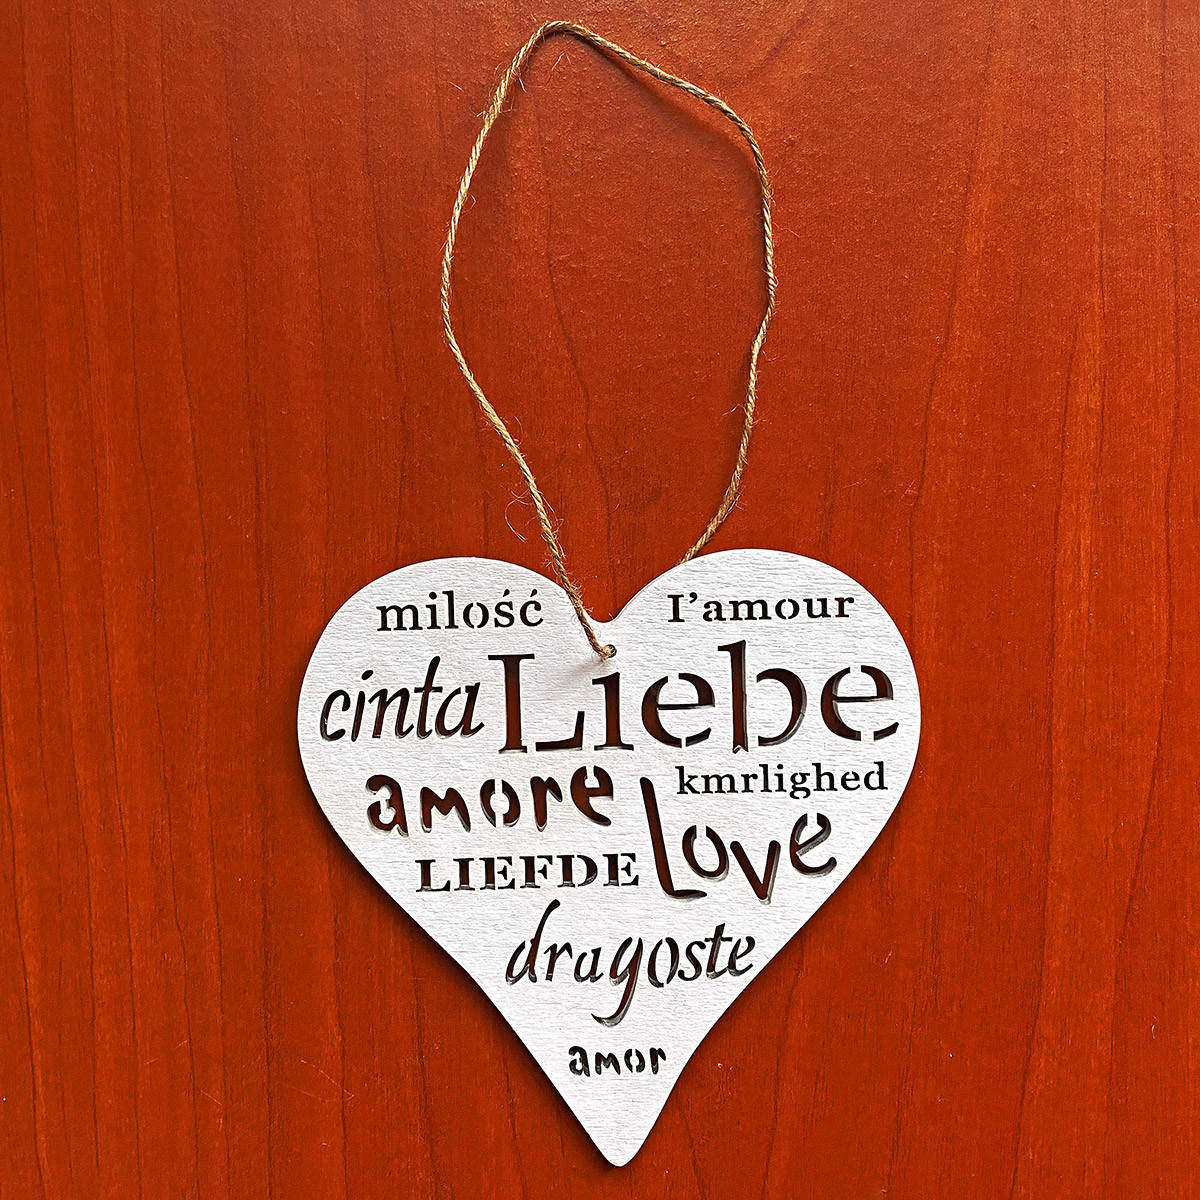 milość
I'amour
cinta
Liebe
amore
kmrlighed
Love
LIEFDE
dragoste
amor